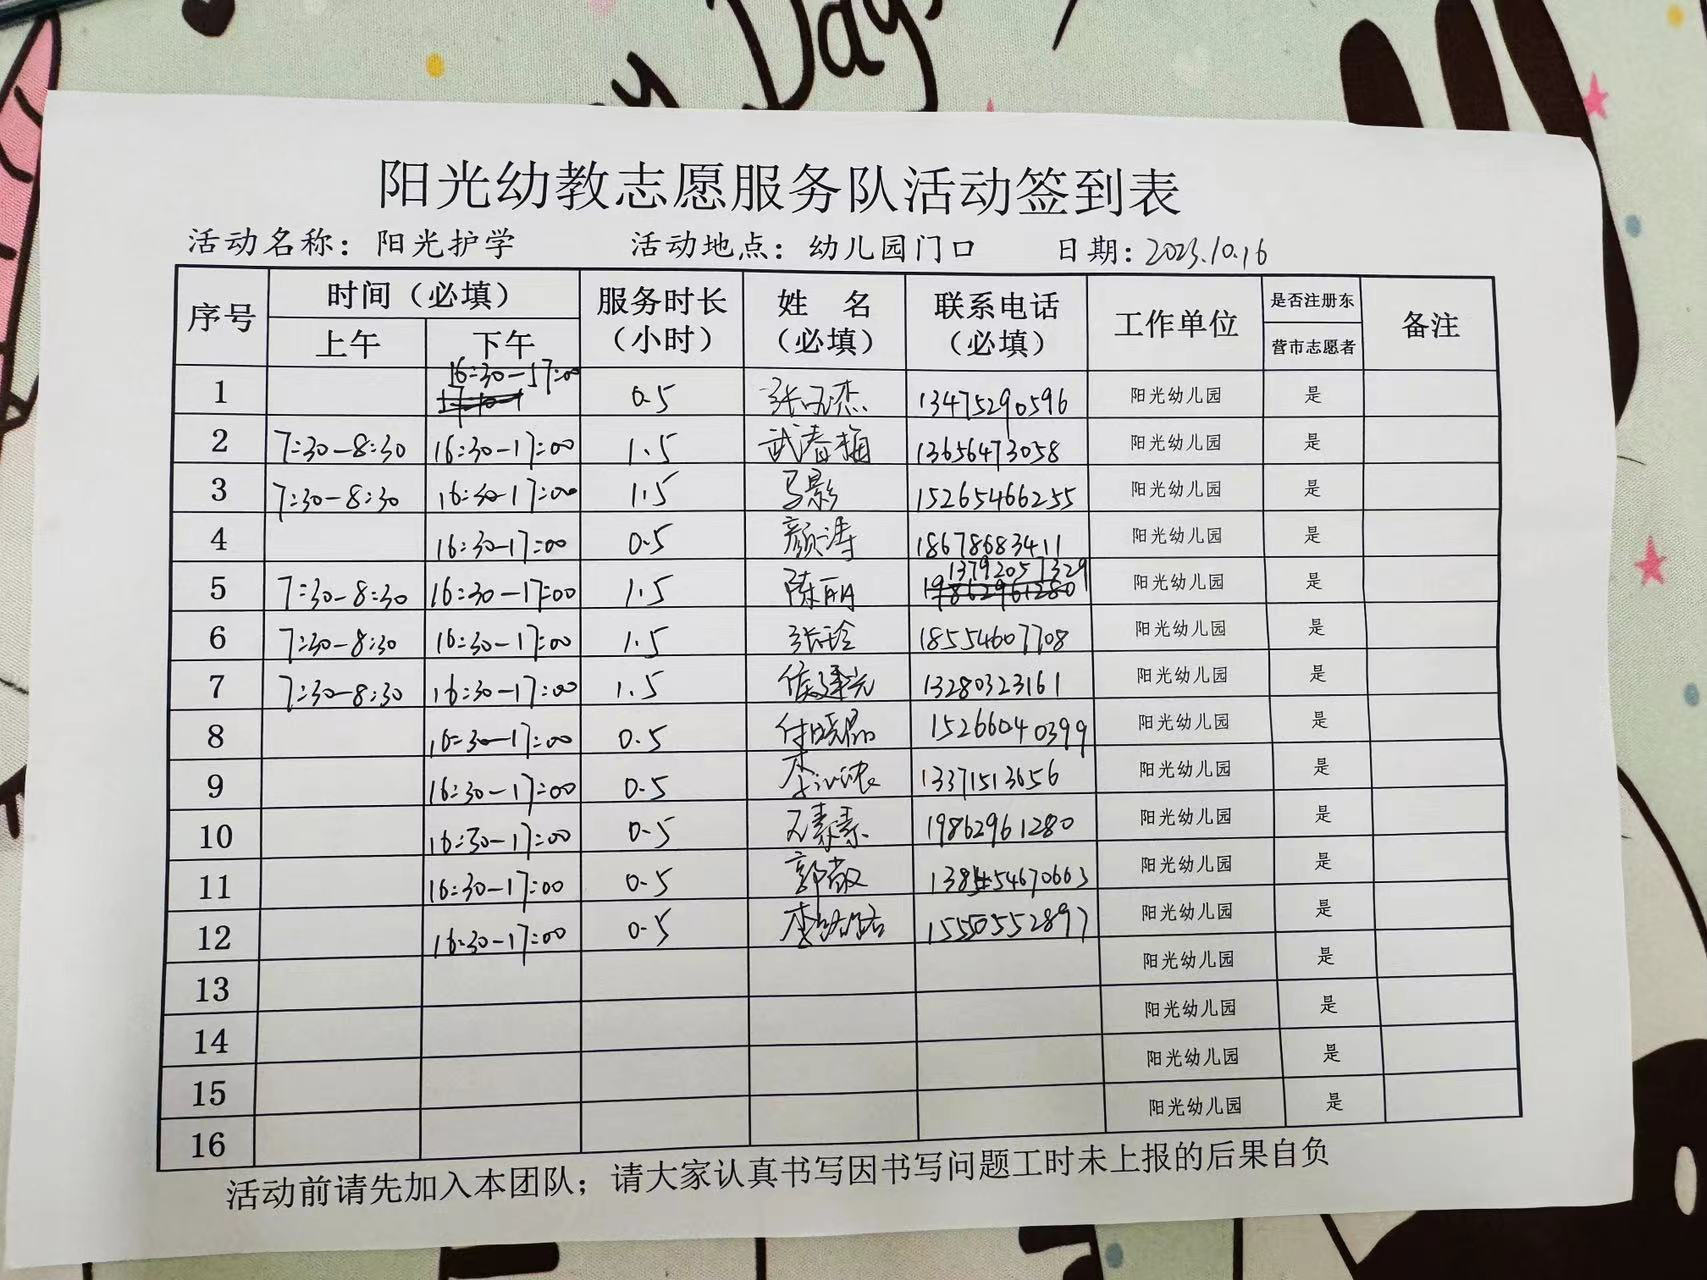 Day
阳光幼教志愿服务队活动签到表
活动名称：阳光护学 活动地点：幼儿园门口 日期：2023.10.16
序号 时间（必填） 服务时长（小时） 姓 名（必填） 联系电话（必填） 工作单位 是否注册东营市志愿者 备注
上午 下午
1 16:30-17:00 0.5 阳光幼儿园 是 13475290596
2 7:30-8:30 16:30-17:00 1.5 武春梅 13656473058 阳光幼儿园 是
3 7:30-8:30 16:30-17:00 1.5 马影 15265466255 阳光幼儿园 是
4 16:30-17:00 0.5 颜涛 18678683411 阳光幼儿园 是
5 7:30-8:30 16:30-17:00 1.5 陈丽 13792057329 19862961280 阳光幼儿园 是
6 7:30-8:30 16:30-17:00 1.5 张玲 18554607708 阳光幼儿园 是
7 7:30-8:30 16:30-17:00 1.5 13280323161 阳光幼儿园 是
8 16:30-17:00 0.5 付晓晶 15266040399 阳光幼儿园 是
9 16:30-17:00 0.5 13371513656 阳光幼儿园 是
10 16:30-17:00 0.5 19862961280 阳光幼儿园 是
11 16:30-17:00 0.5 郭敬 阳光幼儿园 是
12 16:30-17:00 0.5 15550552897 阳光幼儿园 是
13 阳光幼儿园 是
14 阳光幼儿园 是
15 阳光幼儿园 是
16 阳光幼儿园 是
活动前请先加入本团队；请大家认真书写因书写问题工时未上报的后果自负